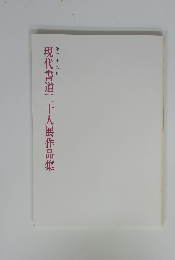 現代書道二十人展作品集